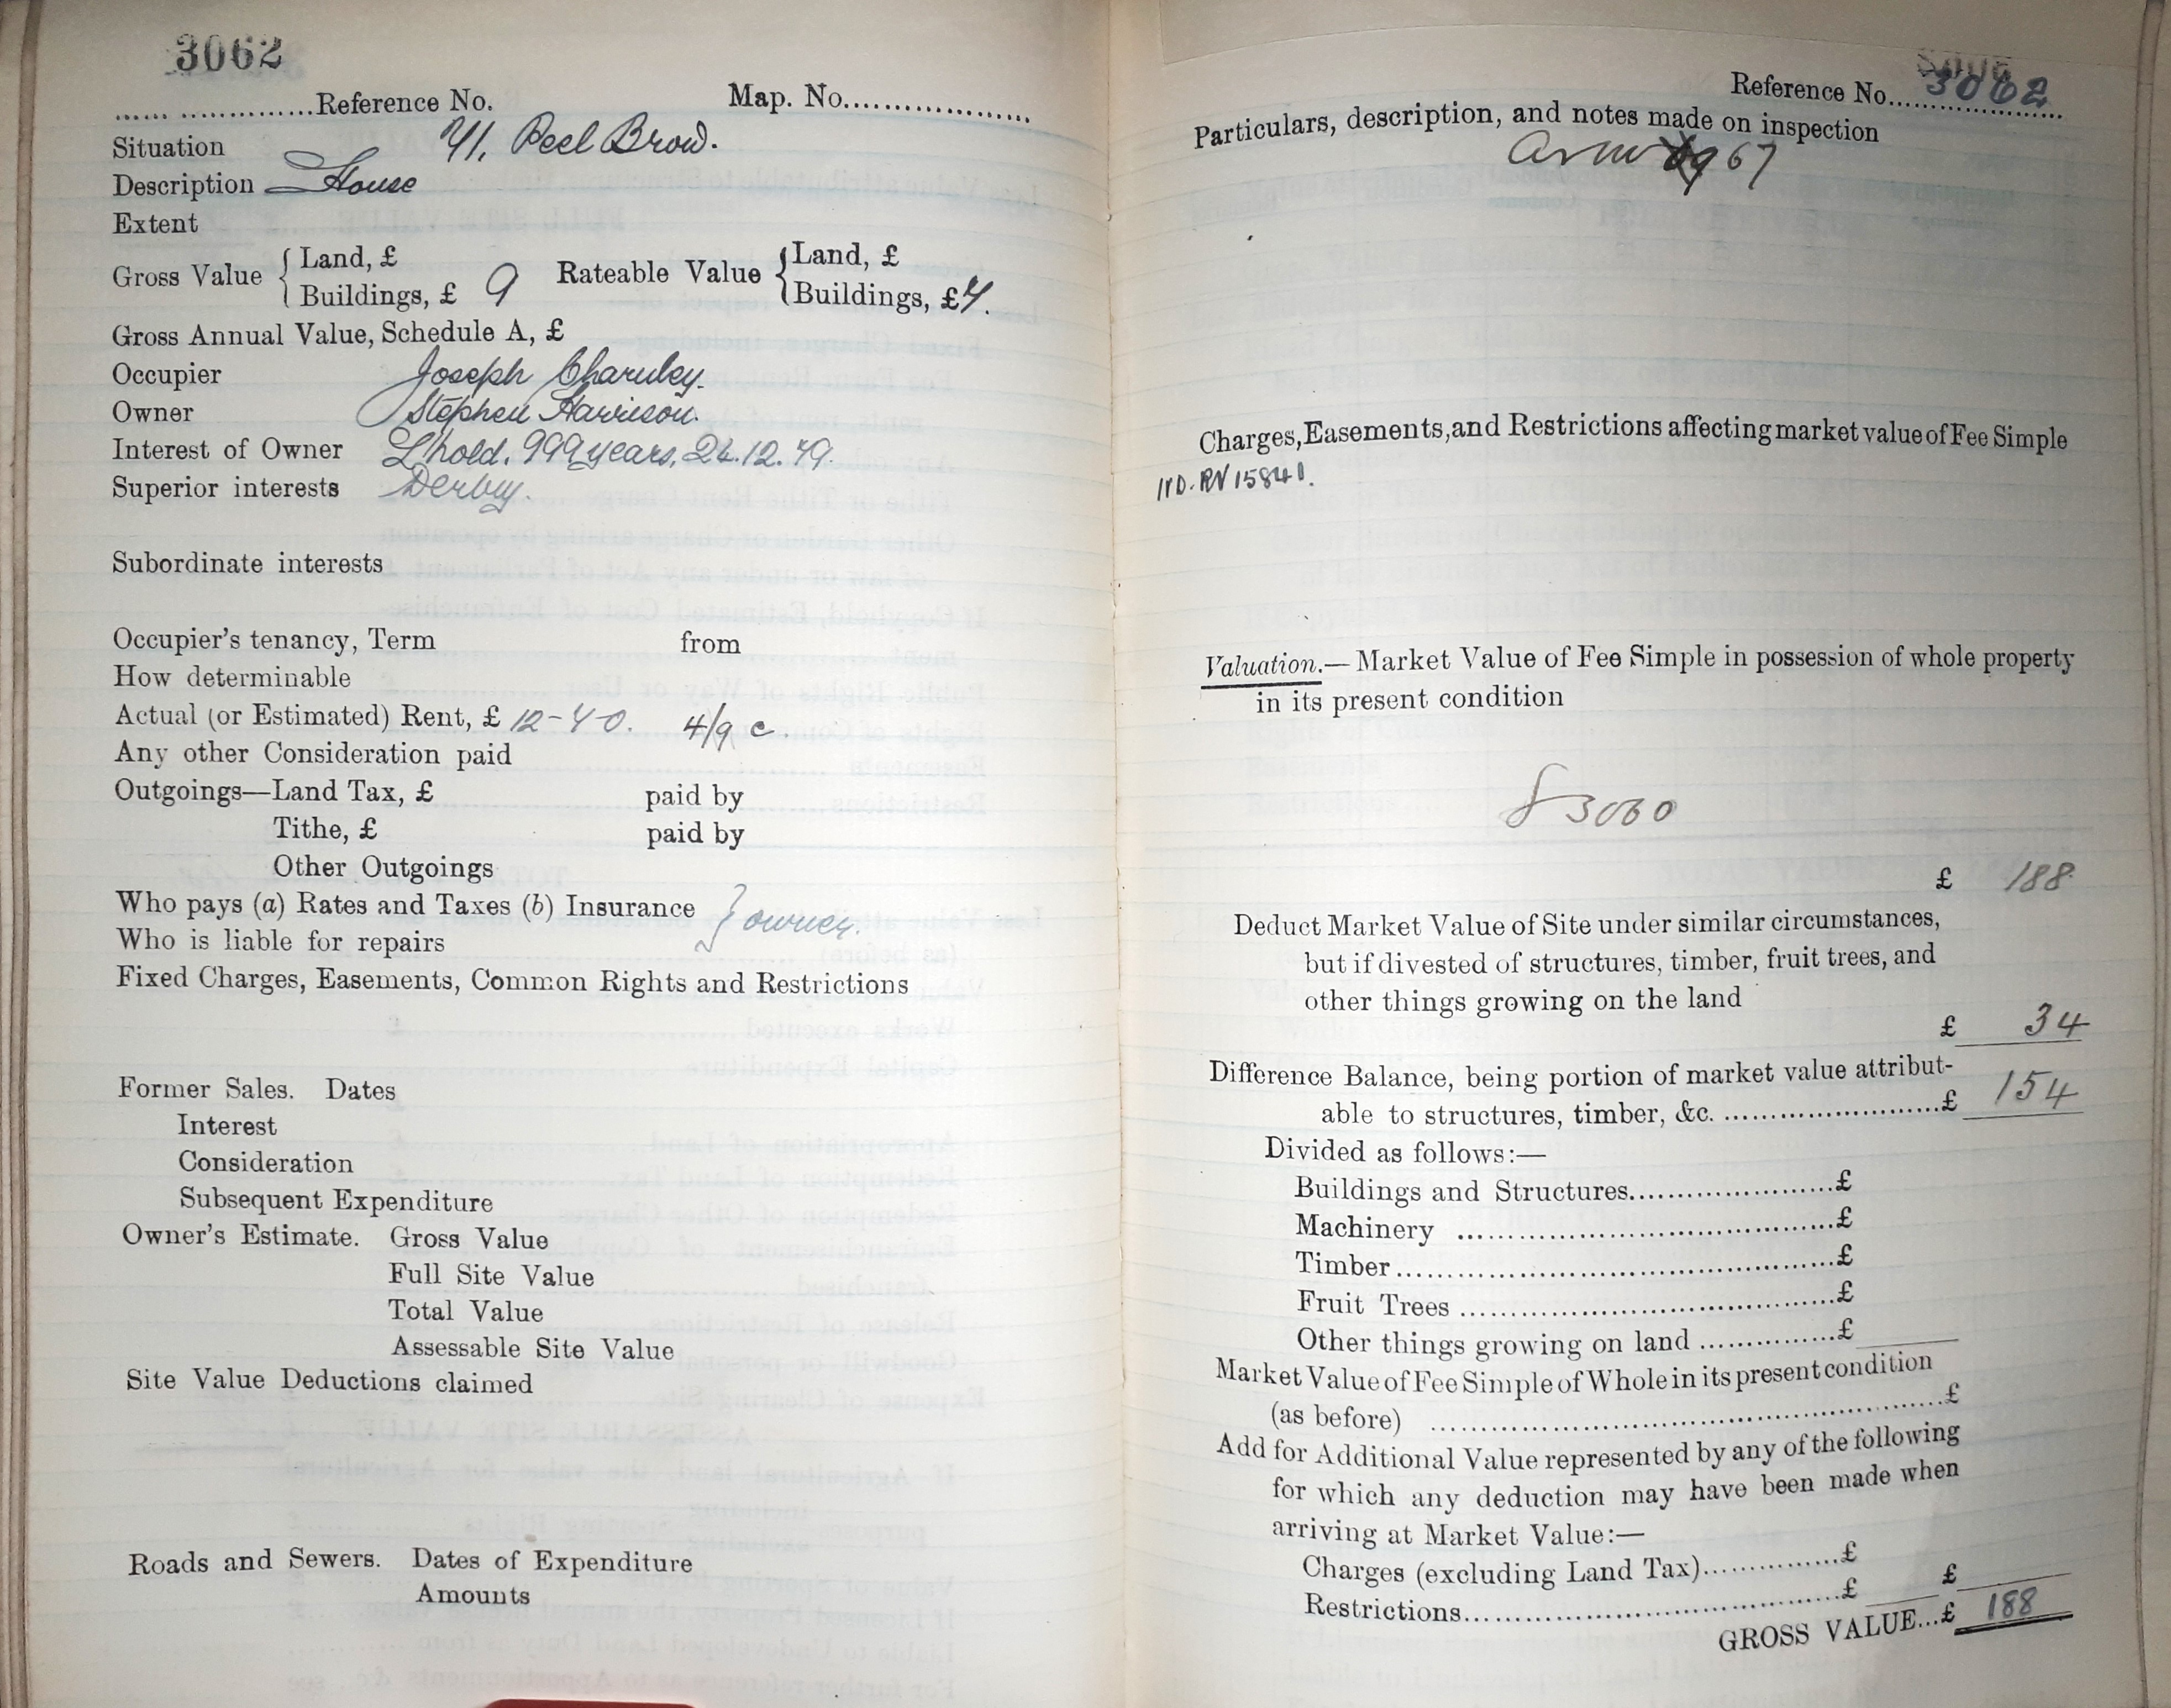 3062
Reference No. Map. No.
Situation 71, Peel Brow.
Description House
Extent
Gross Value { Land, £ Rateable Value { Land, £
Buildings, £ 9 Buildings, £ 7.
Gross Annual Value, Schedule A, £
Occupier Joseph Charnley.
Owner Stephen Harrison.
Interest of Owner L'hold. 999 years. 24.12.79.
Superior interests Derby.
Subordinate interests
Occupier's tenancy, Term from
How determinable
Actual (or Estimated) Rent, £ 12-7-0. 4/9 c.
Any other Consideration paid
Outgoings—Land Tax, £ paid by
Tithe, £ paid by
Other Outgoings
Who pays (a) Rates and Taxes (b) Insurance } owner.
Who is liable for repairs
Fixed Charges, Easements, Common Rights and Restrictions
Former Sales. Dates
Interest
Consideration
Subsequent Expenditure
Owner's Estimate. Gross Value
Full Site Value
Total Value
Assessable Site Value
Site Value Deductions claimed
Roads and Sewers. Dates of Expenditure
Amounts
Reference No. 3062
Particulars, description, and notes made on inspection
67
Charges, Easements, and Restrictions affecting market value of Fee Simple
RV 15841.
Valuation.—Market Value of Fee Simple in possession of whole property
in its present condition
3060
£ 188
Deduct Market Value of Site under similar circumstances,
but if divested of structures, timber, fruit trees, and
other things growing on the land
£ 34
Difference Balance, being portion of market value attribut-
able to structures, timber, &c. £ 154
Divided as follows:—
Buildings and Structures £
Machinery £
Timber £
Fruit Trees £
Other things growing on land £
Market Value of Fee Simple of Whole in its present condition
(as before) £
Add for Additional Value represented by any of the following
for which any deduction may have been made when
arriving at Market Value:—
Charges (excluding Land Tax) £
Restrictions £ £
GROSS VALUE...£ 188